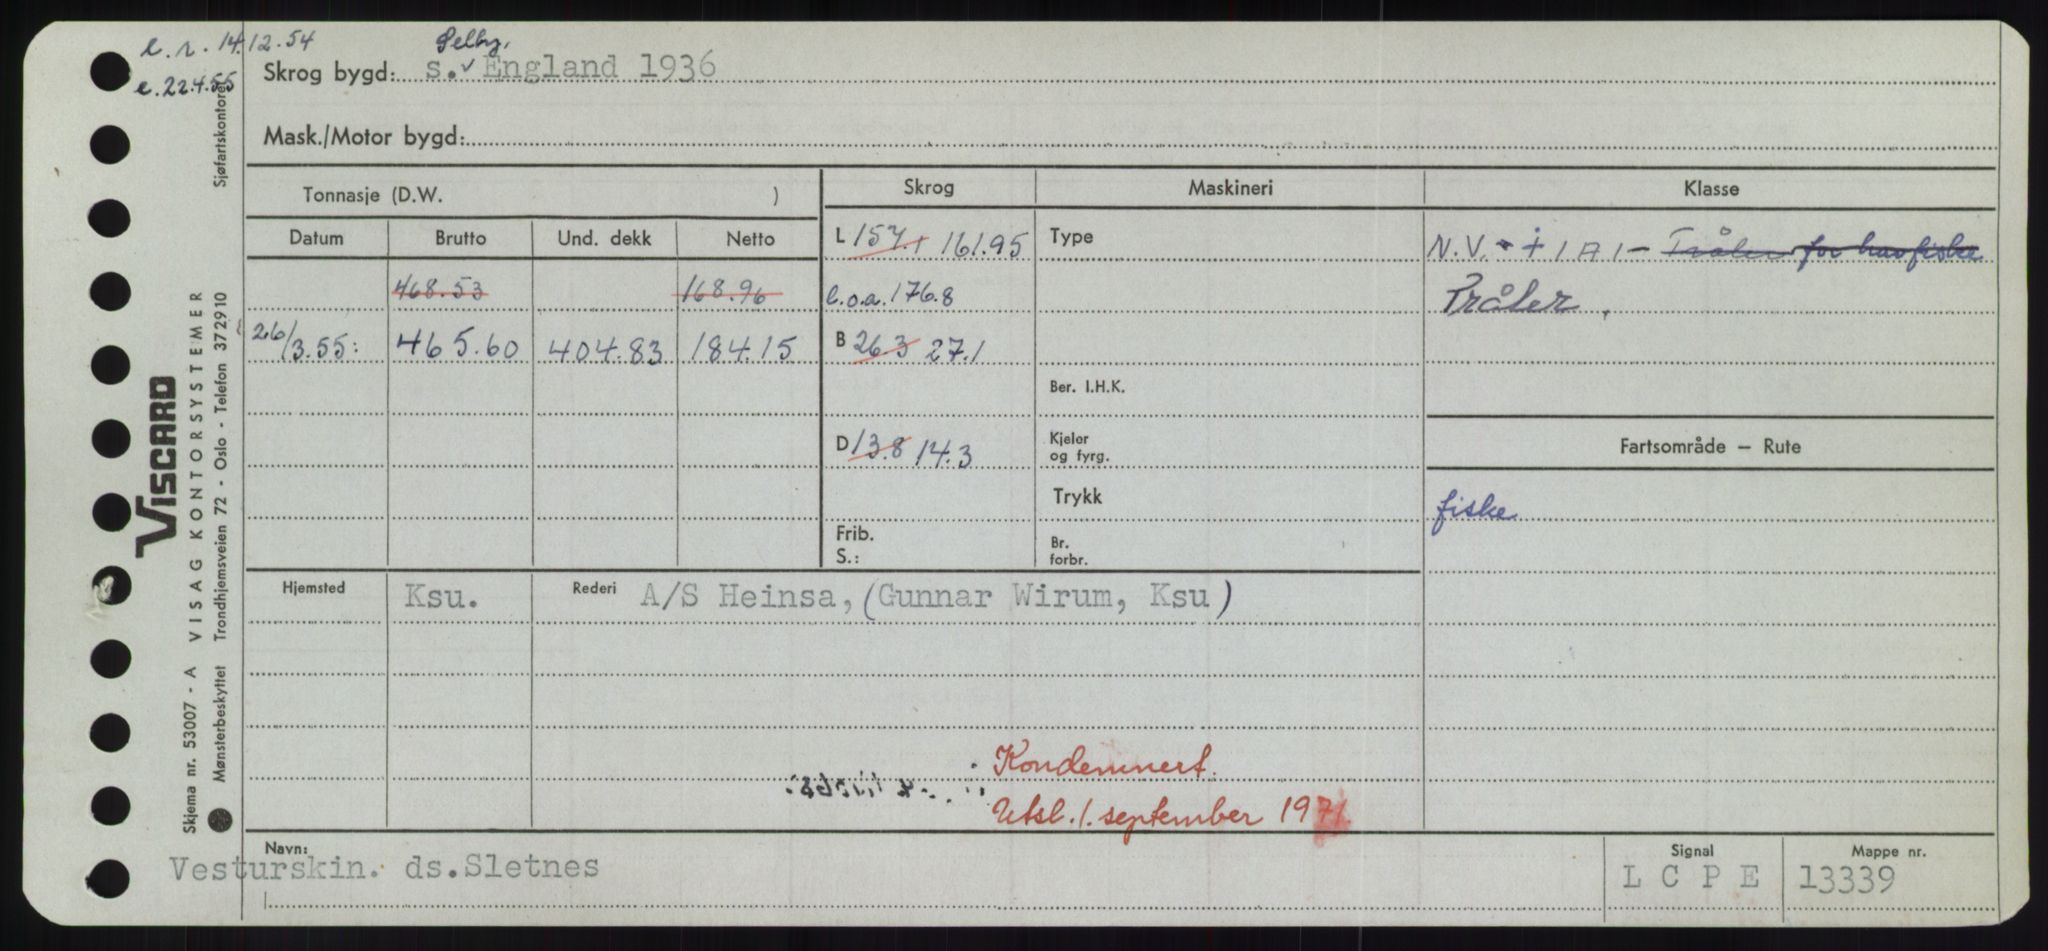 e. r. 14.12.54
e. 22.4.55
Selby,
Skrog bygd: s. v England 1936
Mask./Motor bygd:
Tonnasje (D.W. )
Skrog Maskineri Klasse
Datum Brutto Und. dekk Netto
L 157.1 161.95 Type N.V. + 1 A 1 - Tråler for havfiske
468.53 168.96 l.o.a. 176.8 Tråler.
26/3.55: 465.60 404.83 184.15 B 26.3 27.1
Ber. I.H.K.
D 13.8 14.3 Kjeler og fyrg. Fartsområde — Rute
Trykk fiske
Frib.
S.: Br. forbr.
Hjemsted Ksu. Rederi A/S Heinsa, (Gunnar Wirum, Ksu)
Kondemnert.
Utsl. 1. september 1971
Navn: Signal Mappe nr.
Vesturskin. ds. Sletnes L C P E 13339
Sjøfartskontoret
VISCARD
VISAG KONTORSYSTEMER
Skjema nr. 53007 - A
Mønsterbeskyttet Trondhjemsveien 72 - Oslo - Telefon 372910